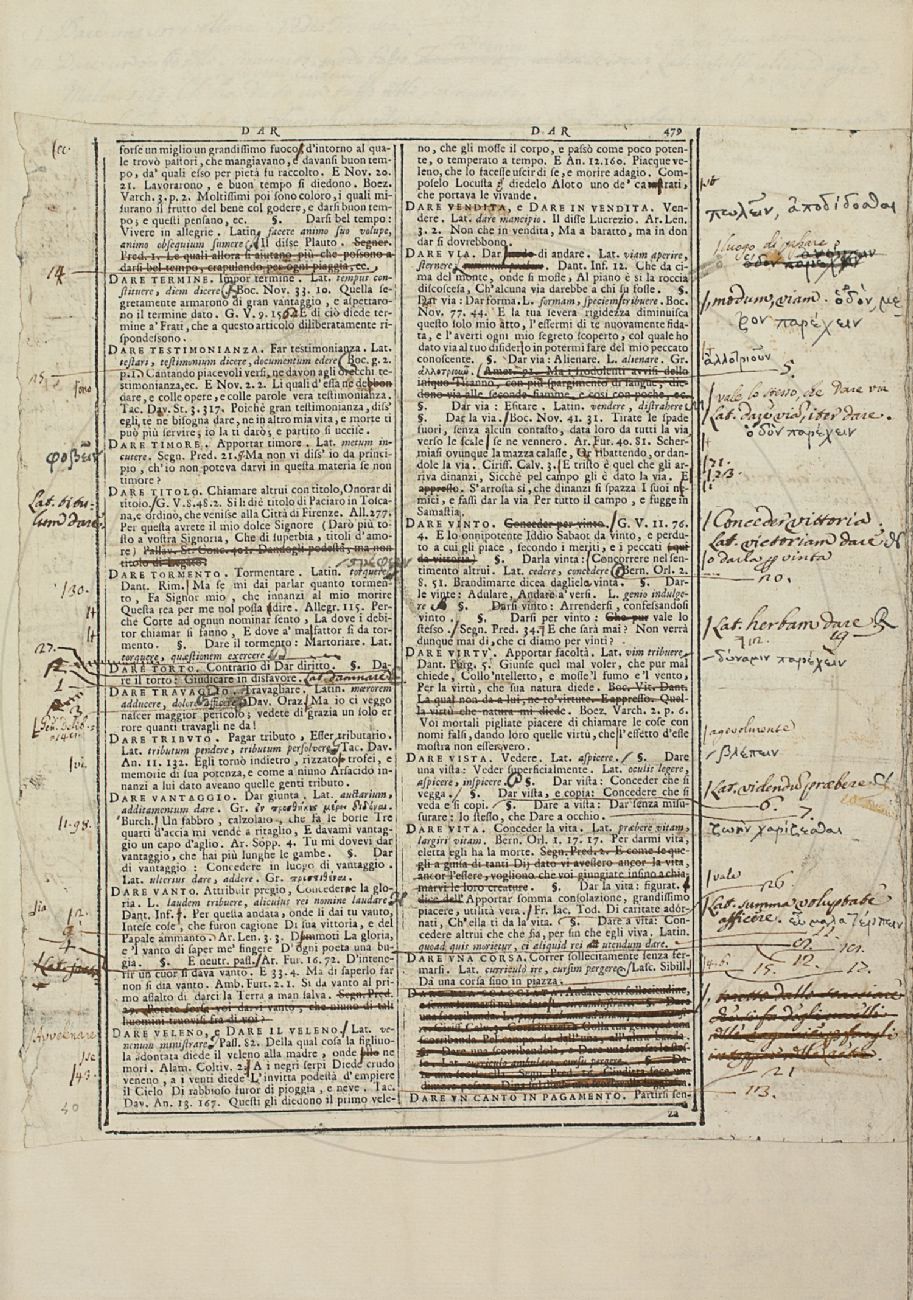 DAR
forse un miglio un grandissimo fuoco d'intorno al qua-
le trovò pastori, che mangiavano, davansi buon tem-
po, da' quali esso per pietà fu raccolto. E Nov. 20.
21. Lavorarono, e buon tempo si diedono. Boez.
Varch. 3. p. 2. Moltissimi poi sono coloro, i quali mi-
surano il frutto del bene col godere, e darsi buon tem-
po; e questi pensano, ec. §. Darsi bel tempo:
Vivere in allegrie. Latin. facere animo suo volupe,
animo obsequium sumere Il disse Plauto. Segner.
Pred. 1. Le quali allora si aiutano più che possono a
darsi bel tempo, crapulando per ogni piaggia, ec.
DARE TERMINE. Impor termine. Lat. tempus con-
stituere, diem dicere Boc. Nov. 33. 10. Quella se-
gretamente armarono di gran vantaggio, e aspettaro-
no il termine dato. G. V. 9. 156. E di ciò diede ter-
mine a' Frati, che a questo articolo diliberatamente ri-
spondessono.
DARE TESTIMONIANZA. Far testimonianza. Lat.
testari, testimonium dicere, documentum edere Boc. g. 2.
p. 1. Cantando piacevoli versi, ne davon agli orecchi te-
stimonianza, ec. E Nov. 2. 2. Li quali d'essa ne debbon
dare, e colle opere, e colle parole vera testimonianza.
Tac. Dav. St. 3. 317. Poichè gran testimonianza, diss'
egli, te ne bisogna dare, ne in altro mia vita, e morte ti
può più servire; io la ti darò; e partito si uccise.
DARE TIMORE. Apportar timore. Lat. metum in-
cutere. Segn. Pred. 21. Ma non vi diss' io da princi-
pio, ch'io non poteva darvi in questa materia se non
timore?
DARE TITOLO. Chiamare altrui con titolo, Onorar di
titolo. G. V. 8. 48. 2. Si li diè titolo di Paciaro in Tosca-
na, e ordino, che venisse alla Città di Firenze. All. 277.
Per questa avrete il mio dolce Signore (Darò più to-
sto a vostra Signoria, Che di superbia, titoli d'amo-
re) Pallav. St. Conc. 401. Dandogli podestà, ma non
titolo di Legato.
DARE TORMENTO. Tormentare. Latin. torquere
Dant. Rim. Ma se mi dai parlar quanto tormen-
to, Fa Signor mio, che innanzi al mio morire
Questa rea per me nol possa dire. Allegr. 115. Per-
chè Corte ad ognun nominar sento, La dove i debi-
tor chiamar si fanno, E dove a' malfattor si da tor-
mento. §. Dare il tormento: Martoriare. Lat.
torquere, quæstionem exercere
DARE TORTO. Contrario di Dar diritto. §. Da-
re il torto: Giudicare in disfavore. Lat. damnare
DARE TRAVAGLIO. Travagliare. Latin. mœrorem
adducere, dolore afficere Dav. Oraz. Ma io ci veggo
nascer maggior pericolo; vedete di grazia un solo er
rore quanti travagli ne da!
DARE TRIBVTO. Pagar tributo, Esser tributario.
Lat. tributum pendere, tributum persolvere Tac. Dav.
An. 11. 132. Egli tornò indietro, rizzato trofei, e
memorie di sua potenza, e come a niuno Arsacido in-
nanzi a lui dato aveano quelle genti tributo.
DARE VANTAGGIO. Dar giunta. Lat. auctarium,
additamentum dare. Gr. ἐν προσθήκης μέρει διδόναι.
Burch. Un fabbro, calzolaio, che fa le borse Tre
quarti d'accia mi vende a ritaglio, E davami vantag-
gio un capo d'aglio. Ar. Sopp. 4. Tu mi dovevi dar
vantaggio, che hai più lunghe le gambe. §. Dar
di vantaggio: Concedere in luogo di vantaggio.
Lat. ulterius dare, addere. Gr. προστιθέναι.
DARE VANTO. Attribuir pregio, Concederne la glo-
ria. L. laudem tribuere, alicuius rei nomine laudare
Dant. Inf. Per questa andata, onde li dai tu vanto,
Intese cose, che furon cagione Di sua vittoria, e del
Papale ammanto. Ar. Len. 3. 3. Dammoti La gloria,
e 'l vanto di saper me' fingere D'ogni poeta una bu-
gia. §. E neutr. pass. Ar. Fur. 16. 72. D'intene-
rir un cuor si dava vanto. E 33. 4. Ma di saperlo far
non si dia vanto. Amb. Furt. 2. 1. Si da vanto al pri-
mo assalto di darci la Terra a man salva. Segn. Pred.
DARE VELENO, e DARE IL VELENO. Lat. ve-
nenum ministrare Pass. 82. Della qual cosa la figliuo-
la adontata diede il veleno alla madre, onde ne
mori. Alam. Coltiv. 2. A i negri serpi Diede crudo
veneno, a i venti diede L'invitta podestà d'empiere
il Cielo Di rabbioso furor di pioggia, e neve. Tac.
Dav. An. 13. 167. Questi gli diedono il primo vele-
DAR 479
no, che gli mosse il corpo, e passò come poco poten-
te, o temperato a tempo. E An. 12. 160. Piacque ve-
leno, che lo facesse uscir di se, e morire adagio. Com-
poselo Locusta diedelo Aloto uno de' castrati,
che portava le vivande.
DARE VENDITA, e DARE IN VENDITA. Ven-
dere. Lat. dare mancipio. Il disse Lucrezio. Ar. Len.
3. 2. Non che in vendita, Ma a baratto, ma in don
dar si dovrebbono.
DARE VIA. Dar di andare. Lat. viam aperire,
sternere Dant. Inf. 12. Che da ci-
ma del monte, onde si mosse, Al piano è si la roccia
discoscesa, Ch'alcuna via darebbe a chi su fosse. §.
Dar via: Dar forma. L. formam, speciem tribuere. Boc.
Nov. 77. 44. E la tua severa rigidezza diminuisca
questo solo mio atto, l'essermi di te nuovamente fida-
ta, e l'averti ogni mio segreto scoperto, col quale ho
dato via al tuo disiderio in potermi fare del mio peccato
conoscente. §. Dar via: Alienare. L. alienare. Gr.
ἀλλοτριοῦν. Amet. 92. Ma i frodolenti avvisi dello
iniquo Tiranno, con più spargimento di sangue, die-
dono via alle seconde fiamme, e così con poche, ec.
§. Dar via: Esitare. Latin. vendere, distrahere
§. Dar la via. Boc. Nov. 41. 31. Tirate le spade
fuori, senza alcun contasto, data loro da tutti la via
verso le scale se ne vennero. Ar. Fur. 40. 81. Scher-
miasi ovunque la mazza calasse, Or ribattendo, or dan-
dole la via. Ciriff. Calv. 3. E tristo è quel che gli ar-
riva dinanzi, Sicchè pel campo gli è dato la via. E
appresso. S'arrosta si, che dinanzi si spazza I suoi ne-
mici, e fassi dar la via Per tutto il campo, e fugge in
Samastia.
DARE VINTO. Conceder per vinto. G. V. 11. 76.
4. E lo onnipotente Iddio Sabaot da vinto, e perdu-
to a cui gli piace, secondo i meriti, e i peccati (qui
da vittoria) §. Darla vinta: Concorrere nel sen-
timento altrui. Lat. cedere, concedere Bern. Orl. 2.
§. 51. Brandimarte dicea dagliele vinta. §. Dar-
le vinte: Adulare, Andare a' versi. L. genio indulge-
re §. Darsi vinto: Arrendersi, confessandosi
vinto. §. Darsi per vinto: Che pur vale lo
stesso. Segn. Pred. 34. E che sarà mai? Non verrà
dunque mai di, che ci diamo per vinti?
DARE VIRTV. Apportar facoltà. Lat. vim tribuere
Dant. Purg. 5. Giunse quel mal voler, che pur mal
chiede, Collo 'ntelletto, e mosse 'l fumo e 'l vento,
Per la virtù, che sua natura diede. Boc. Vit. Dant.
La qual non da a lui, ne to' virtute. E appresso. Quel-
la virtù che natura mi diede. Boez. Varch. 2. p. 6.
Voi mortali pigliate piacer di chiamare le cose con
nomi falsi, dando loro quelle virtù, che l'effetto d'esse
mostra non esser vero.
DARE VISTA. Vedere. Lat. aspicere. §. Dare
una vista: Veder superficialmente. Lat. oculis legere,
aspicere, inspicere. §. Dar vista: Conceder che si
vegga. §. Dar vista, e copia: Concedere che si
veda e si copi. §. Dare a vista: Dar senza misu-
surare: lo stesso, che Dare a occhio.
DARE VITA. Conceder la vita. Lat. præbere vitam,
largiri vitam. Bern. Orl. 1. 17. 17. Per darmi vita,
eletta egli ha la morte. Segn. Pred. 2. E come se que-
gli a guisa di tanti Dij dato vi avessero ancor la vita,
ancor l'essere, vogliono che voi giungiate insino a chia-
marvi le loro creature. §. Dar la vita: figurat. si
dice dell' Apportar somma consolazione, grandissimo
piacere, utilità vera. Fr. Iac. Tod. Di caritate ador-
nati, Ch'ella ti da la vita. §. Dare a vita: Con-
cedere altrui che che sia, per sin che egli viva. Latin.
quoad quis morietur, ei aliquid rei utendum dare.
DARE VNA CORSA. Correr sollecitamente senza fer-
marsi. Lat. curriculò ire, cursim pergere Lasc. Sibill.
Dà una corsa sino in piazza.
DARE VN CANTO IN PAGAMENTO. Partirsi sen-
za
14
15.
φοβεῖν
Lat. titu-
lum dare.
130.
27.
12
1
11.98.
143.
40
πωλεῖν, ἀποδίδοσθαι
luogo di passare
modum, viam. ὁδόν, μέ-
ρον παρέχειν
ἀλλοτριοῦν
5.
vale lo stesso, che Dare via
Lat. dare viã, iter dare.
ὁδὸν παρέχειν
123.
Conceder vittoria.
Lat. victoriam dare
o darla p vinta
20.
Lat. herbam dare
19
δύναμιν παρέχειν
agevolmente
βλέπειν
Lat. videndũ præbere
6.
7.
ζωὴν χαρίζεσθαι
vale
26.
Lat. summa voluptate
afficere.
15. 12. 17.
21
113.